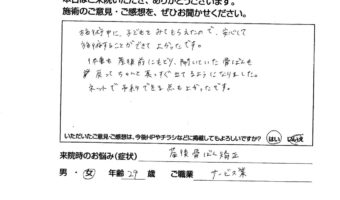 本日はご来院いただき、ありがとうございます。
施術のご意見・ご感想を、ぜひお聞かせください。
施術中に、子どもを みてもらえたので、安心して
施術することができて 良かったです。
体重も 産後前にもどり、開いていた 骨ばんも
戻って ちゃんと まっすぐ立てるようになりました。
ネットで 予約できる点も 良かったです。
いただいたご意見・ご感想は、今後HPやチラシなどに掲載してもよろしいですか? はい いいえ
来院時のお悩み(症状) 産後骨ばん矯正
男・女 年齢 29 歳 ご職業 サービス業